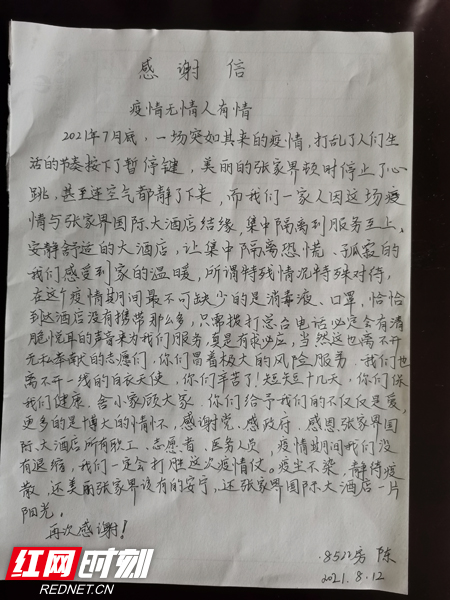 感谢信
疫情无情人有情
2021年7月底，一场突如其来的疫情，打乱了人们生
活的节奏按下了暂停键，美丽的张家界顿时停止了心
跳，甚至连空气都静了下来，而我们一家人因这场疫
情与张家界国际大酒店结缘，集中隔离到服务至上、
安静舒适的大酒店，让集中隔离恐慌、孤寂的
我们感受到家的温暖，所谓特殊情况特殊对待，
在这个疫情期间最不可缺少的是消毒液、口罩，恰恰
到达酒店没有携带那么多，只需拨打总台电话必定会有清
脆悦耳的声音来为我们服务，真是有求必应，当然这也离不开
无私奉献的志愿们，你们冒着极大的风险服务，我们也
离不开一线的白衣天使，你们辛苦了，短短十几天，你们保
我们健康，舍小家顾大家，你们给予我们的不仅仅是爱，
更多的是博大的情怀，感谢党、感政府，感恩张家界国
际大酒店所有职工、志愿者、医务人员，疫情期间我们没
有退缩，我们一定会打胜这次疫情仗。疫尘不染，静待疫
散，还美丽张家界该有的安宁，还张家界国际大酒店一片
阳光。
再次感谢！
8522房 陈
2021.8.12
红网时刻
REDNET.CN